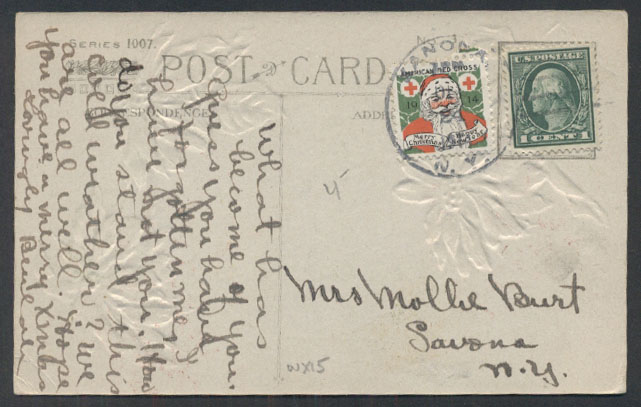 SERIES 1007.
POST CARD
CORRESPONDENCE
ADDRE
AMERICAN RED CROSS
19 14
Merry Christmas
N. Y.
U.S. POSTAGE
1 CENT 1
What has
become of you.
guess you have
forgotten me. I
have not you. How
do you stand this
cold weather? We
are all well. Hope
you have a merry Xmas
Lovingly
Mrs Mollie Burt
Savona
N.Y.
WX15